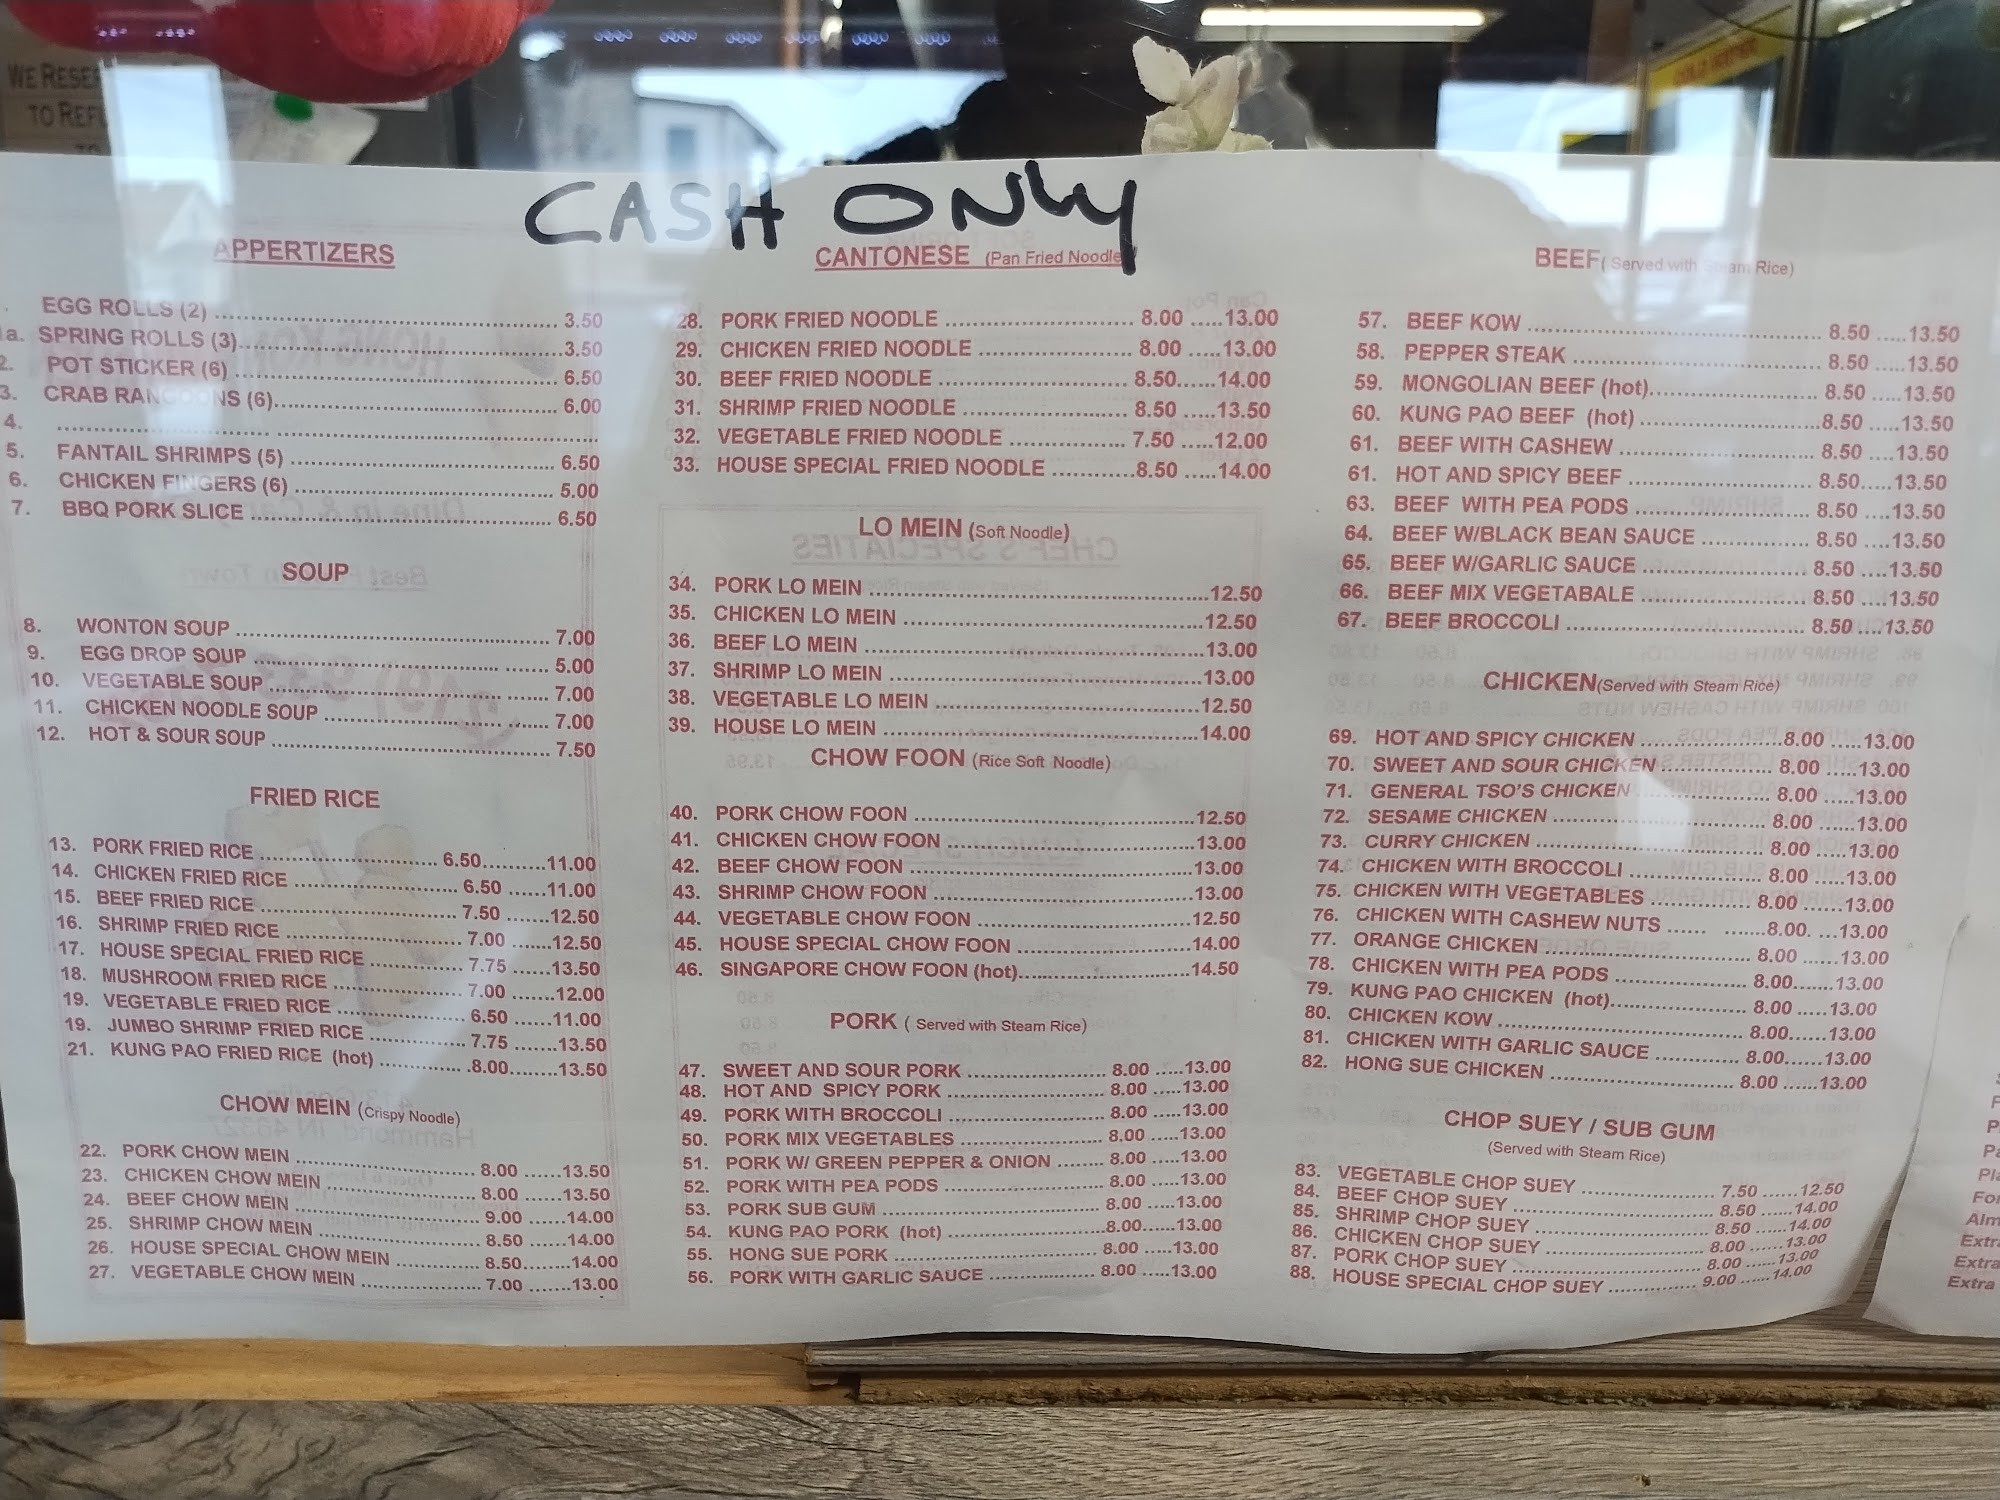 WE RESE
TO REFU
TO
CASH ONLY
APPERTIZERS
EGG ROLLS (2) 3.50
1a. SPRING ROLLS (3) 3.50
2. POT STICKER (6) 6.50
3. CRAB RANGOONS (6) 6.00
4.
5. FANTAIL SHRIMPS (5) 6.50
6. CHICKEN FINGERS (6) 5.00
7. BBQ PORK SLICE 6.50
SOUP
8. WONTON SOUP 7.00
9. EGG DROP SOUP 5.00
10. VEGETABLE SOUP 7.00
11. CHICKEN NOODLE SOUP 7.00
12. HOT & SOUR SOUP 7.50
FRIED RICE
13. PORK FRIED RICE 6.50 11.00
14. CHICKEN FRIED RICE 6.50 11.00
15. BEEF FRIED RICE 7.50 12.50
16. SHRIMP FRIED RICE 7.00 12.50
17. HOUSE SPECIAL FRIED RICE 7.75 13.50
18. MUSHROOM FRIED RICE 7.00 12.00
19. VEGETABLE FRIED RICE 6.50 11.00
19. JUMBO SHRIMP FRIED RICE 7.75 13.50
21. KUNG PAO FRIED RICE (hot) 8.00 13.50
CHOW MEIN (Crispy Noodle)
22. PORK CHOW MEIN 8.00 13.50
23. CHICKEN CHOW MEIN 8.00 13.50
24. BEEF CHOW MEIN 9.00 14.00
25. SHRIMP CHOW MEIN 8.50 14.00
26. HOUSE SPECIAL CHOW MEIN 8.50 14.00
27. VEGETABLE CHOW MEIN 7.00 13.00
CANTONESE (Pan Fried Noodle
28. PORK FRIED NOODLE 8.00 13.00
29. CHICKEN FRIED NOODLE 8.00 13.00
30. BEEF FRIED NOODLE 8.50 14.00
31. SHRIMP FRIED NOODLE 8.50 13.50
32. VEGETABLE FRIED NOODLE 7.50 12.00
33. HOUSE SPECIAL FRIED NOODLE 8.50 14.00
LO MEIN (Soft Noodle)
34. PORK LO MEIN 12.50
35. CHICKEN LO MEIN 12.50
36. BEEF LO MEIN 13.00
37. SHRIMP LO MEIN 13.00
38. VEGETABLE LO MEIN 12.50
39. HOUSE LO MEIN 14.00
CHOW FOON (Rice Soft Noodle)
40. PORK CHOW FOON 12.50
41. CHICKEN CHOW FOON 13.00
42. BEEF CHOW FOON 13.00
43. SHRIMP CHOW FOON 13.00
44. VEGETABLE CHOW FOON 12.50
45. HOUSE SPECIAL CHOW FOON 14.00
46. SINGAPORE CHOW FOON (hot) 14.50
PORK ( Served with Steam Rice)
47. SWEET AND SOUR PORK 8.00 13.00
48. HOT AND SPICY PORK 8.00 13.00
49. PORK WITH BROCCOLI 8.00 13.00
50. PORK MIX VEGETABLES 8.00 13.00
51. PORK W/ GREEN PEPPER & ONION 8.00 13.00
52. PORK WITH PEA PODS 8.00 13.00
53. PORK SUB GUM 8.00 13.00
54. KUNG PAO PORK (hot) 8.00 13.00
55. HONG SUE PORK 8.00 13.00
56. PORK WITH GARLIC SAUCE 8.00 13.00
BEEF ( Served with Steam Rice)
57. BEEF KOW 8.50 13.50
58. PEPPER STEAK 8.50 13.50
59. MONGOLIAN BEEF (hot) 8.50 13.50
60. KUNG PAO BEEF (hot) 8.50 13.50
61. BEEF WITH CASHEW 8.50 13.50
61. HOT AND SPICY BEEF 8.50 13.50
63. BEEF WITH PEA PODS 8.50 13.50
64. BEEF W/BLACK BEAN SAUCE 8.50 13.50
65. BEEF W/GARLIC SAUCE 8.50 13.50
66. BEEF MIX VEGETABALE 8.50 13.50
67. BEEF BROCCOLI 8.50 13.50
CHICKEN (Served with Steam Rice)
69. HOT AND SPICY CHICKEN 8.00 13.00
70. SWEET AND SOUR CHICKEN 8.00 13.00
71. GENERAL TSO'S CHICKEN 8.00 13.00
72. SESAME CHICKEN 8.00 13.00
73. CURRY CHICKEN 8.00 13.00
74. CHICKEN WITH BROCCOLI 8.00 13.00
75. CHICKEN WITH VEGETABLES 8.00 13.00
76. CHICKEN WITH CASHEW NUTS 8.00 13.00
77. ORANGE CHICKEN 8.00 13.00
78. CHICKEN WITH PEA PODS 8.00 13.00
79. KUNG PAO CHICKEN (hot) 8.00 13.00
80. CHICKEN KOW 8.00 13.00
81. CHICKEN WITH GARLIC SAUCE 8.00 13.00
82. HONG SUE CHICKEN 8.00 13.00
CHOP SUEY / SUB GUM
(Served with Steam Rice)
83. VEGETABLE CHOP SUEY 7.50 12.50
84. BEEF CHOP SUEY 8.50 14.00
85. SHRIMP CHOP SUEY 8.50 14.00
86. CHICKEN CHOP SUEY 8.00 13.00
87. PORK CHOP SUEY 8.00 13.00
88. HOUSE SPECIAL CHOP SUEY 9.00 14.00
Extra
Extra